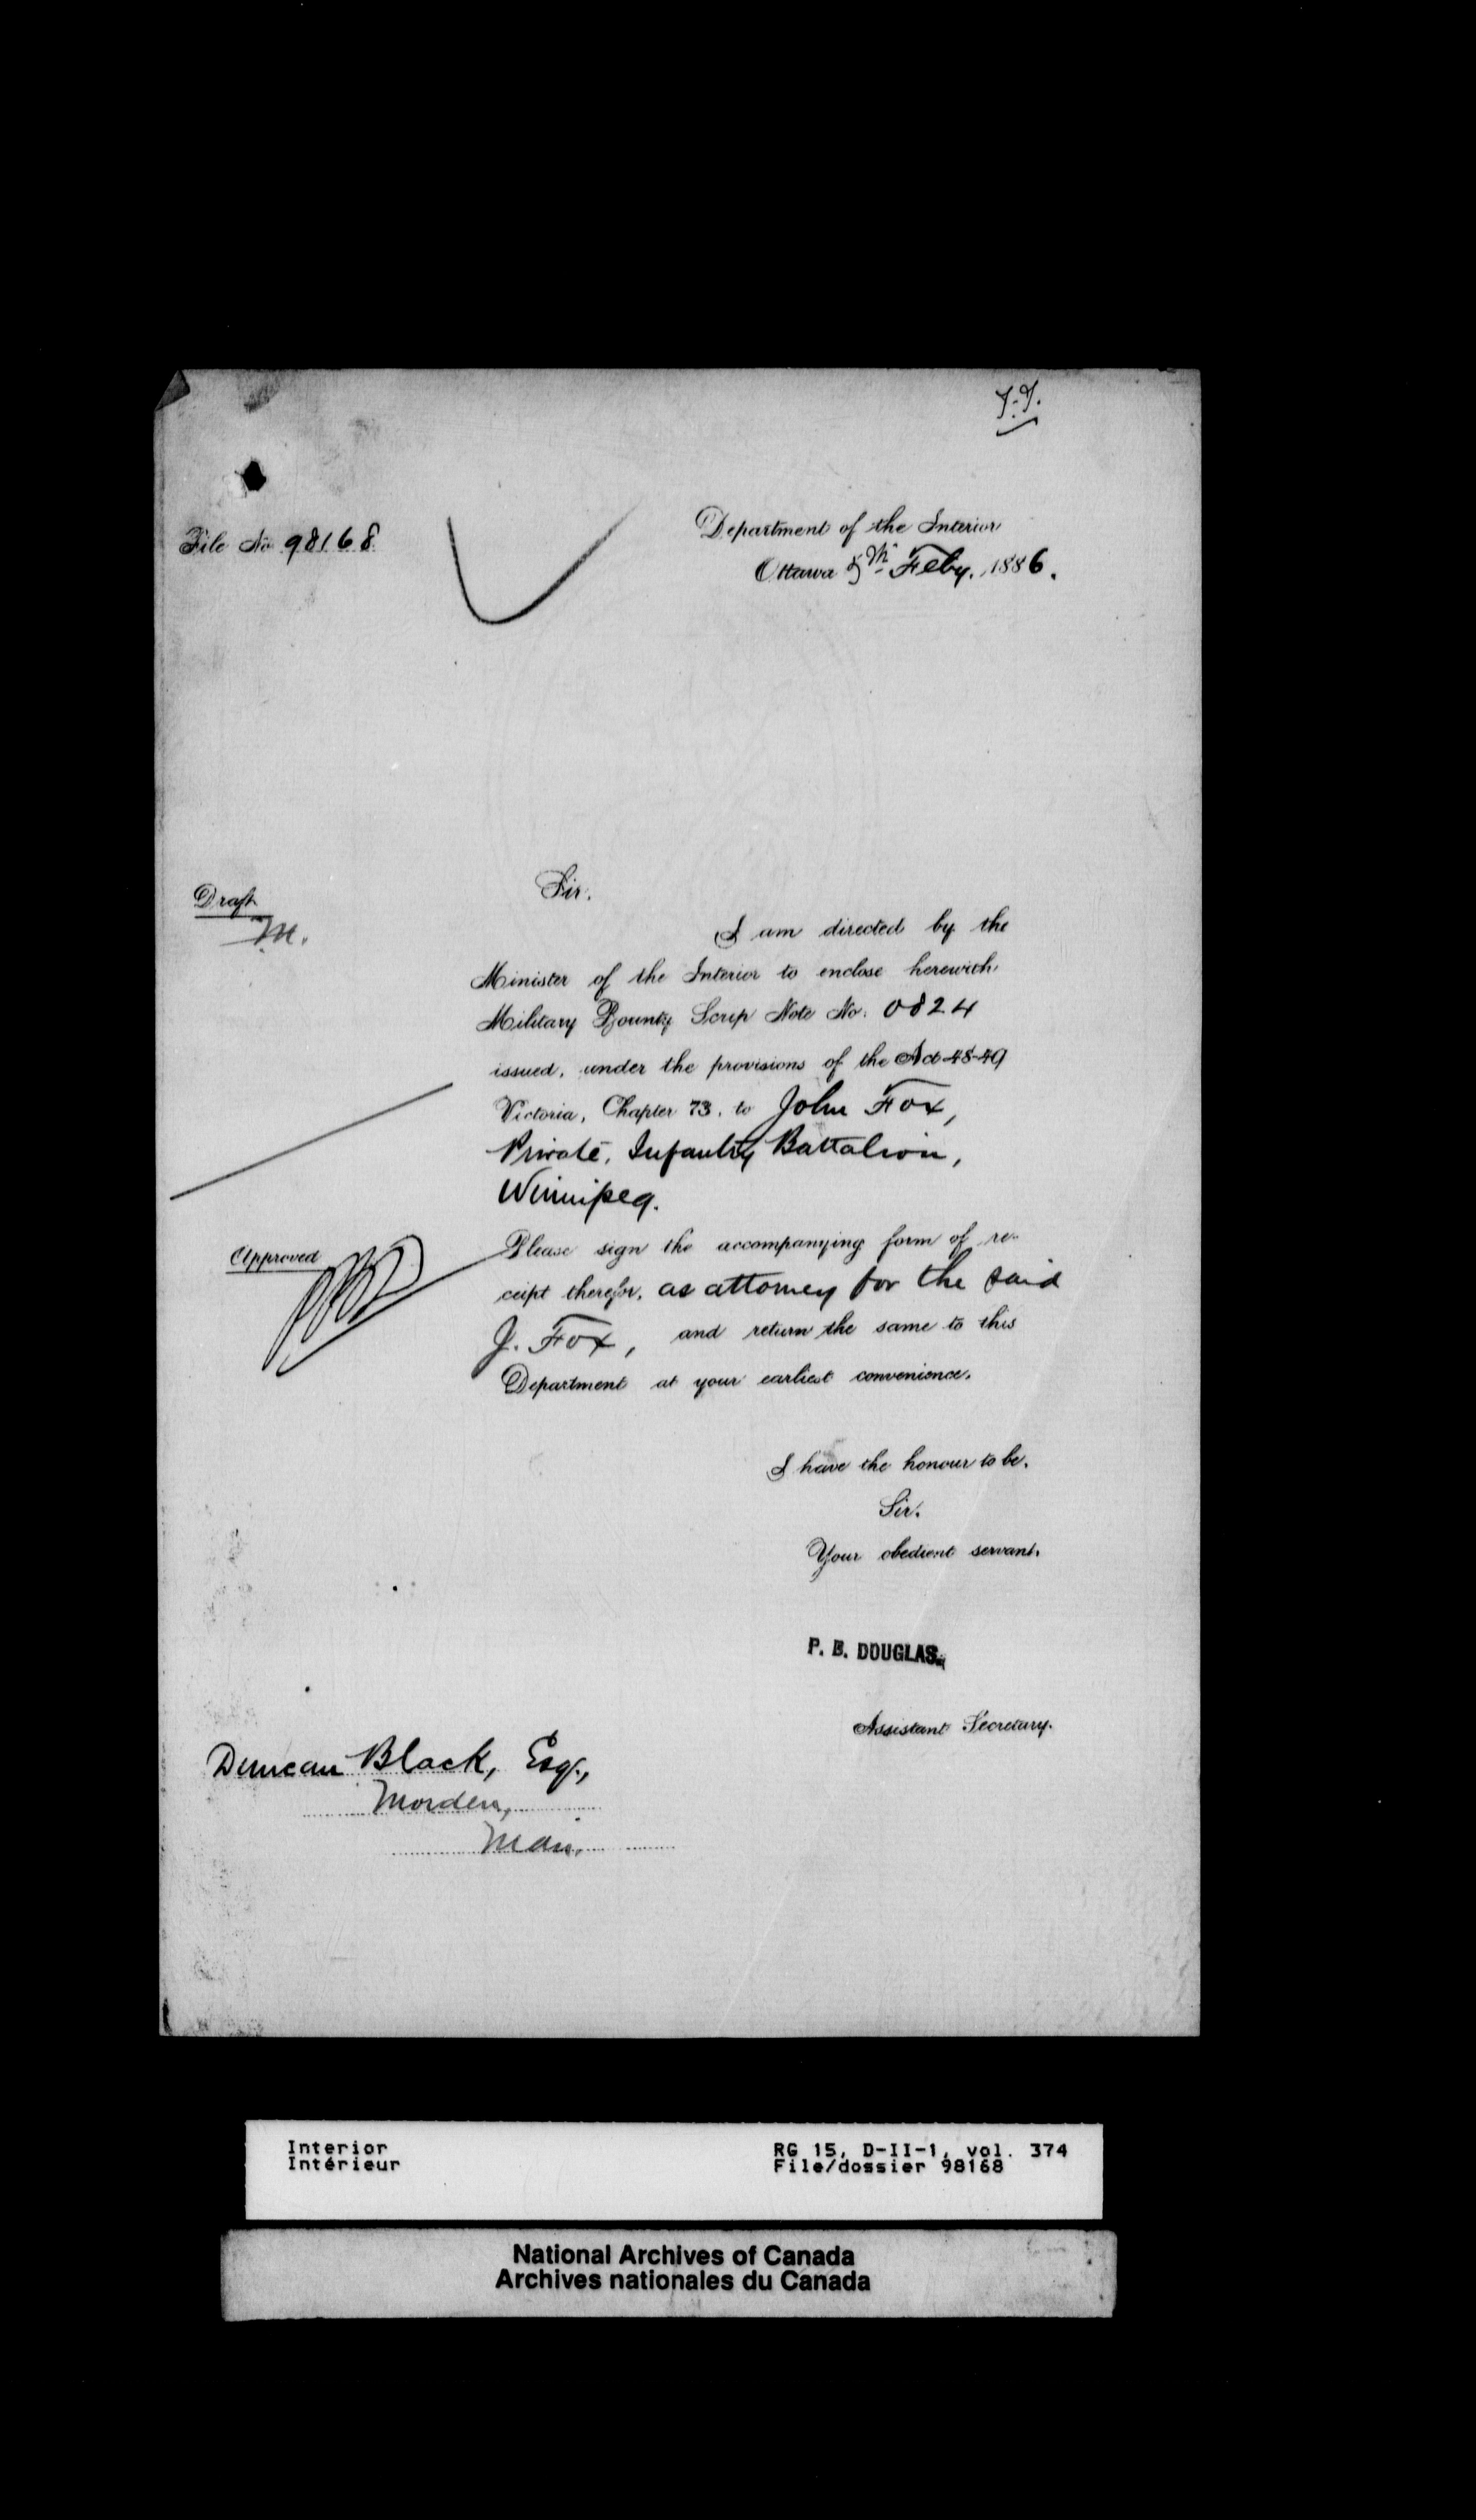 File No 98168
Department of the Interior
Ottawa 5th Feby. 1886.
Draft
M.
Sir,
I am directed by the
Minister of the Interior to enclose herewith
Military Bounty Scrip Note No. 0824
issued, under the provisions of the Act 48-49
Victoria, Chapter 73, to John Fox,
Private, Infantry Battalion,
Winnipeg.
Approved
Please sign the accompanying form of re-
ceipt therefor, as attorney for the said
J. Fox, and return the same to this
Department at your earliest convenience.
I have the honour to be,
Sir,
Your obedient servant,
P. B. DOUGLAS.
Assistant Secretary.
Duncan Black, Esq.,
Morden,
Man.
Interior
Intérieur
RG 15, D-II-1, vol. 374
File/dossier 98168
National Archives of Canada
Archives nationales du Canada